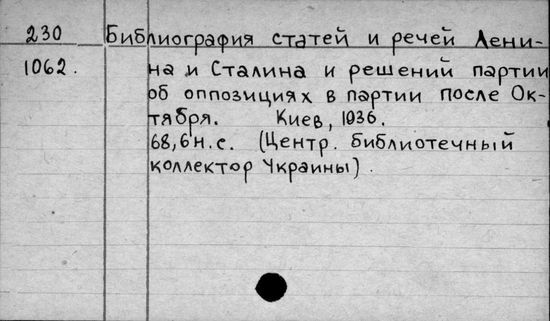 230 Библиография статей и речей Лени-
1062. на и Сталина и решений партии
об оппозициях в партии после Ок-
тября. Киев, 1936.
68,6 н.с. (Центр. библиотечный
коллектор Украины).